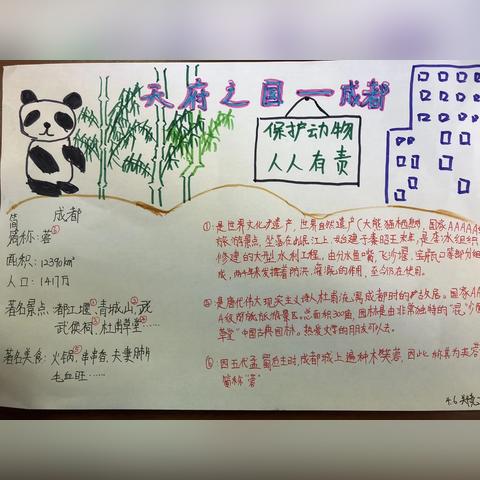 天府之国一成都
保护动物
人人有责
成都
简称:蓉⑤
面积:12390km²
人口:1417万
著名景点:都江堰①,青城山②,
武侯祠③,杜甫草堂④……
著名美食:火锅,串串香,夫妻肺片
毛血旺……
①:是世界文化遗产,世界自然遗产(大熊猫栖息地,国家AAAAA
旅游景点,坐落在岷江上,始建于秦昭王末年,是李冰组织
修建的大型水利工程,由分水鱼嘴,飞沙堰,宝瓶口等部分组
成,两千年来发挥着防洪,灌溉的作用,至今仍在使用。
是唐代伟大现实主义诗人杜甫流离成都时的故居。国家AA
A级旅游景区。总面积30
草堂"中国古典园林。
⑤ 四五代孟蜀后主时,成都城上遍种木芙蓉,因此,称其为芙蓉
简称"蓉"
4.6